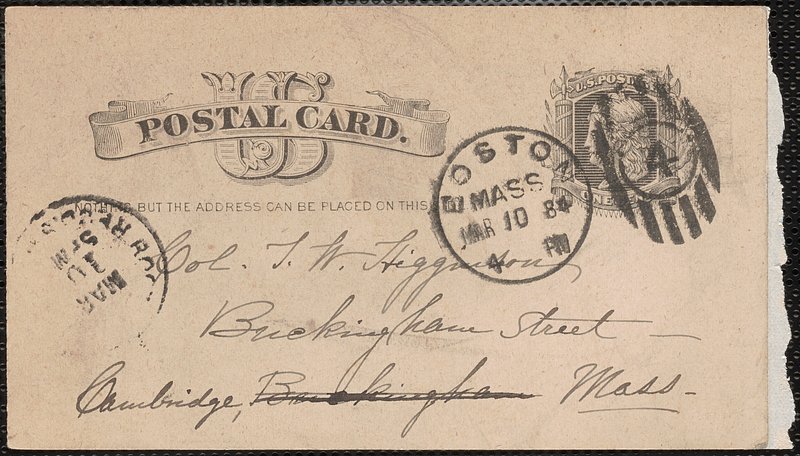 US
POSTAL CARD.
U.S. POSTAGE
ONE
NOTHING BUT THE ADDRESS CAN BE PLACED ON THIS
BOSTON
MASS
MAR 10 84
4 PM
4
MAR
10
5 PM
Col. T. W. Higginson
Buckingham Street —
Cambridge, Buckingham Mass-